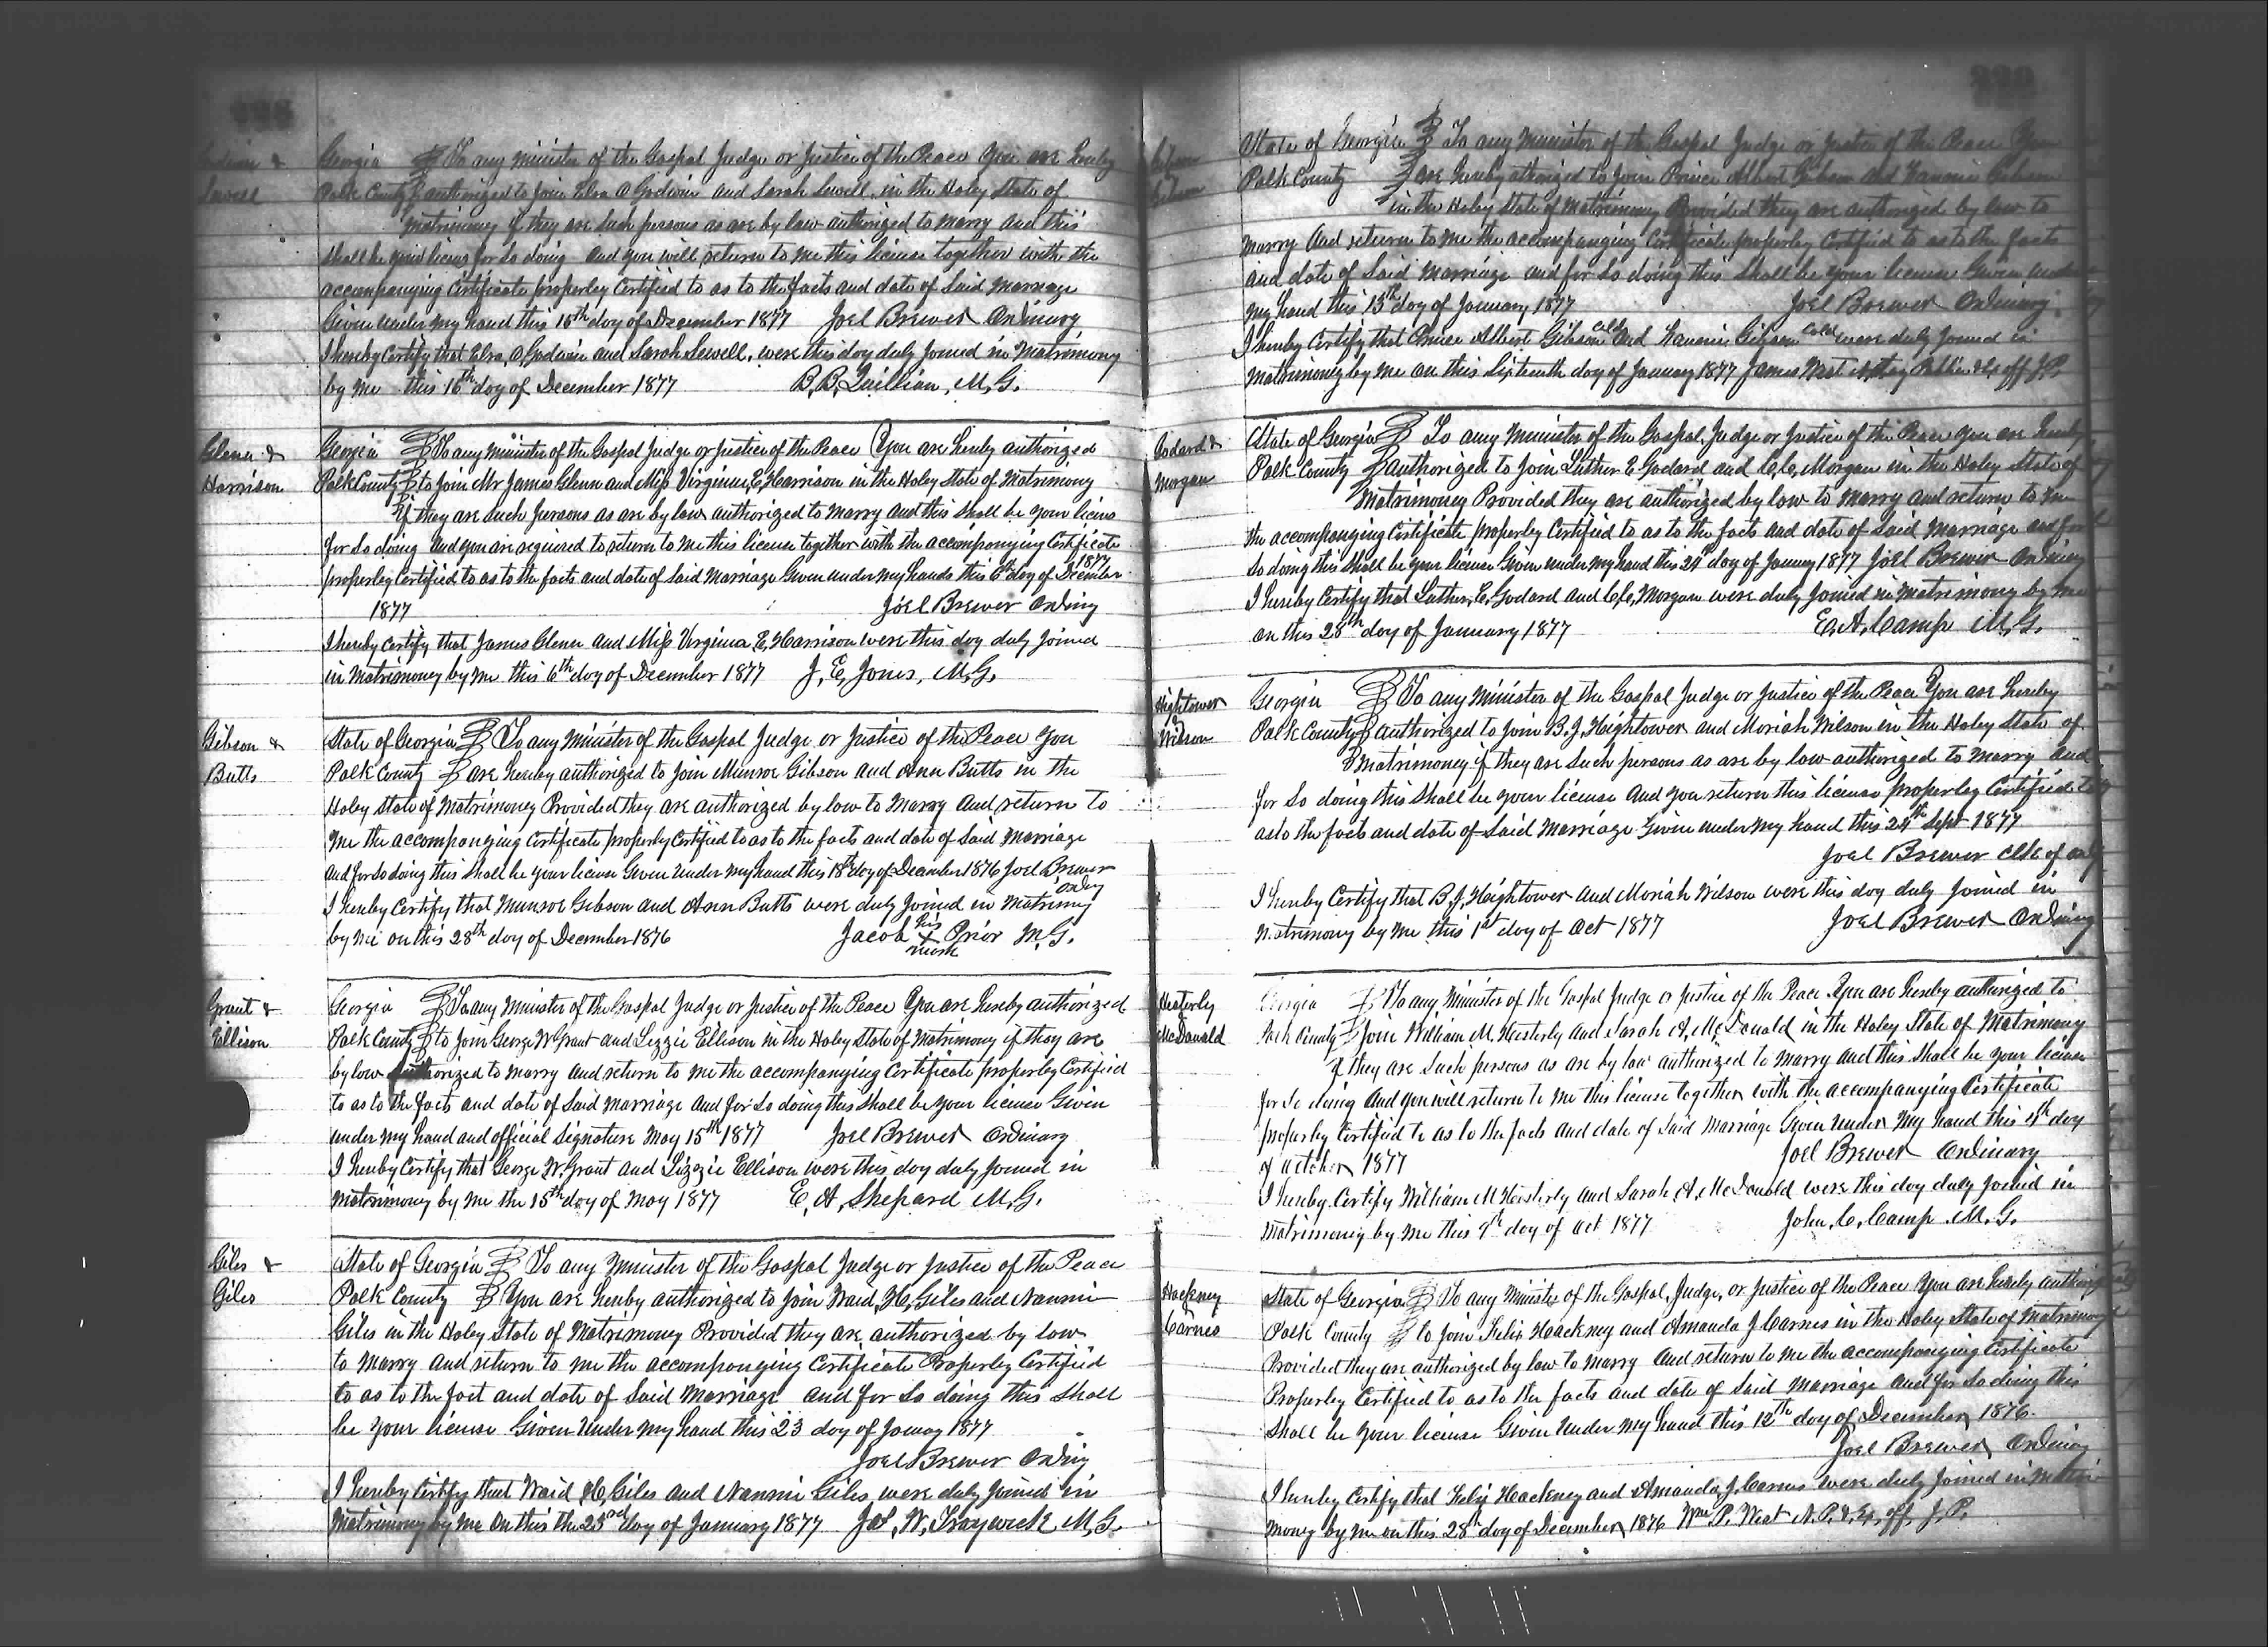 Godwin &
Sewell
Georgia To any minister of the Gospal Judge or Justice of the Peace You are hereby
Polk County authorized to join Elza A Godwin and Sarah Sewell, in the Holey State of
Matrimoney if they are Such persons as are by low authorized to marry and this
Shall be your licens for So doing and you will return to me this license together with the
accompanying Certificate properley Certified to as to the facts and date of Said marriage
Given under my hand this 15th day of December 1877 Joel Brewer Ordinary
I hereby Certify that Elza, A, Godwin and Sarah Sewell, were this day duly Joined in Matrimony
by me this 16th day of December 1877 B, B, Quillian, M, G.
Glenn &
Harrison
Georgia To any Minister of the Gospal Judge or Justice of the Peace You are hereby authorized
Polk County to Join Mr James Glenn and Miss Virginia, E, Harrison in the Holey State of Matrimony
if they are Such persons as are by low authorized to marry and this Shall be your licens
for So doing and you are required to return to me this license together with the accompanying Certificate
properley Certified to as to the facts and date of Said Marriage Given under my hands this 6th day of December 1877
1877 Joel Brewer Ordiny
I hereby Certify that James Glenn and Miss Virginia, E, Harrison were this day duly Joined
in Matrimoney by me this 6th day of December 1877 J, E, Jones, M, G,
Gibson &
Butts
State of Georgia To any Minister of the Gospal Judge or Justice of the Peace You
Polk County are hereby authorized to Join Munroe Gibson and Ann Butts in the
Holey State of Matrimoney Provided they are authorized by low to Marry And return to
Me the accompanying Certificate properly Certified to as to the facts and date of Said Marriage
And for So doing this Shall be your license Given under my hand this 18th day of December 1876 Joel Brewer
Ordiny
I hereby Certify that Munroe Gibson and Ann Butts were duly Joined in Matrimony
by Me on this 28th day of December 1876 Jacob his X mark Prior M. G.
Grant &
Ellison
Georgia To any Minister of the Gospal Judge or Justice of the Peace You are hereby authorized
Polk County to Join George W Grant and Lizzie Ellison in the Holey State of Matrimony if they are
by low authorized to marry and return to me the accompanying Certificate properley Certified
to as to the facts and date of Said Marriage and for So doing this Shall be your license Given
under my hand and official Signature May 15th 1877 Joel Brewer Ordinary
I hereby Certify that George W. Grant and Lizzie Ellison were this day duly Joined in
Matrimoney by me the 15th day of May 1877 E, A, Shepard M, G.
Giles &
Giles
State of Georgia To any Minister of the Gospal Judge or Justice of the Peace
Polk County You are hereby authorized to Join Waid, H, Giles and Nannie
Giles in the Holey State of Matrimoney Provided they are authorized by low
to Marry and return to me the accomponying Certificate Properley Certified
to as to the fact and date of Said Marriage and for So doing this Shall
be your license Given under my hand this 23 day of Januay 1877
Joel Brewer Ordiny
I hereby Certify that Waid H, Giles and Nannie Giles were duly Joined in
Matrimoney by me on this the 23rd day of January 1877 Jas, W, Traywick M, G.
Gibson
Gibson
State of Georgia To any Minister of the Gospal Judge or Justice of the Peace You
Polk County are hereby authorized to Join Prince Albert Gibson and Gibson
in the Holey State of Matrimoney Provided they are authorized by low to
marry and return to me the accompanying Certificate properley Certified to as to the facts
and date of Said Marriage and for So doing this Shall be your license Given under
my hand this 13th day of January 1877 Joel Brewer Ordinary
I hereby Certify that Prince Albert Gibson Cold and Gibson Cold were duly Joined in
Matrimoney by me on this Sixteenth day of January 1877 James West Notary Public & Ex off J.P.
Godard &
Morgan
State of Georgia To any Minister of the Gospal, Judge or Justice of the Peace You are hereby
Polk County authorized to Join Luther E Godard and C, C, Morgan in the Holey State of
Matrimoney Provided they are authorized by low to Marry and return to me
the accompanying Certificate properley Certified to as to the facts and date of Said Marriage and for
So doing this Shall be your license Given under my hand this 24th day of Januay 1877 Joel Brewer Ordiny
I hereby Certify that Luther, E, Godard and C, C, Morgan were duly Joined in Matrimoney by me
on this 28th day of January 1877 E, A, Camp M, G.
Hightower
&
Wilson
Georgia To any Minister of the Gospal Judge or Justice of the Peace You are hereby
Polk County authorized to Join B. J, Hightower and Moriah Wilson in the Holey State of
Matrimoney if they are Such persons as are by low authorized to marry and
for So doing this Shall be your license And you return this license properley Certified to
as to the facts and date of Said Marriage Given under my hand this 24th Sept 1877
Joel Brewer Clk of ordy
I hereby Certify that B, J, Hightower and Moriah Wilson were this day duly Joined in
Matrimony by me this 1st day of Oct 1877 Joel Brewer Ordinay
Hesterley
McDonald
Georgia To any Minister of the Gospal Judge or Justice of the Peace You are hereby authorized to
Polk County Join William M. Hesterly and Sarah A, McDonald in the Holey State of Matrimony
if they are Such persons as are by low authorized to marry and this Shall be your license
for So doing And you will return to me this license together with the accompanying Certificate
properley Certified to as to the facts and date of Said Marriage Given under my hand this 4th day
of October 1877 Joel Brewer Ordinary
I hereby Certify William M Hesterly and Sarah A, McDonald were this day duly Joined in
Matrimony by me this 9th day of Oct 1877 John, C, Camp M. G.
Hackney
&
Carnes
State of Georgia To any Minister of the Gospal, Judge, or Justice of the Peace You are hereby authorized
Polk County to Join Felix Hackney and Amanda J Carnes in the Holey State of Matrimony
Provided they are authorized by low to Marry And return to me the accomponying Certificate
Properley Certified to as to the facts and date of Said Marriage and for So doing this
Shall be your license Given under my hand this 12th day of December 1876
Joel Brewer Ordinay
I hereby Certify that Felix Hackney and Amanda, J, Carnes were duly Joined in Matri
money by me on this 28th day of December 1876 Wm P. West N. P. & Ex, off, J, P.